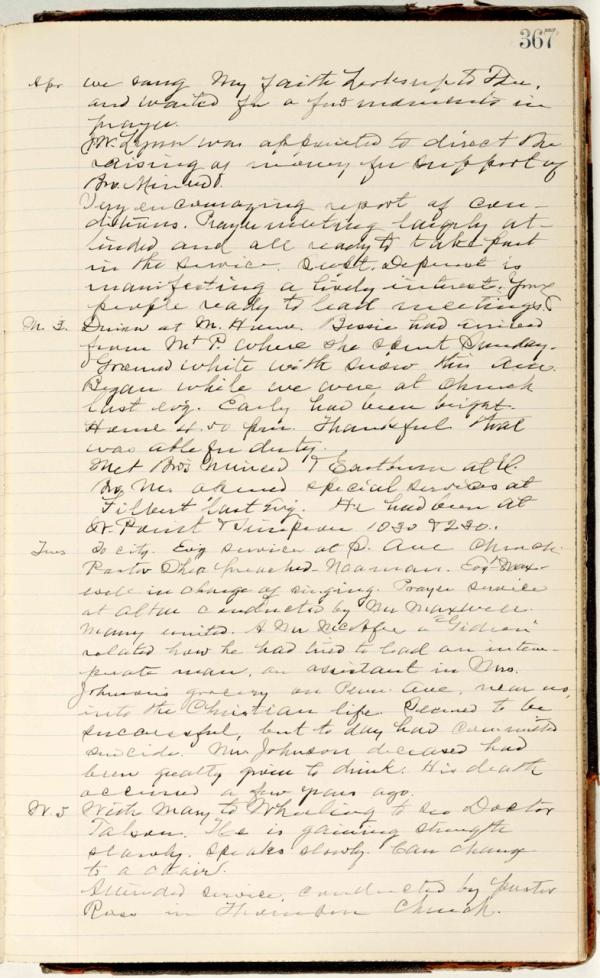 367
Apr we sang My Faith Looks up to Thee,
and waited for a few moments in
prayer.
J.W. Lynn was appointed to direct the
raising of money for support of
Bro. Minced.
Very encouraging report of con-
ditions. Prayer meeting largely at-
tended and all ready to take part
in the service. is
manifesting a lively interest. Young
people ready to lead meetings.
M. 3. Dinner at M. Home. Bessie had arrived
from Mt P. where she spent Sunday.
Ground white with snow this am.
Began while we were at church
last evg. Early had been bright.
Home 4.50 pm. Thankful that
was able for duty.
Met Bros Minced & Eastburn at
Bro M. opened special services at
Filbert last evg. He had been at
Point & Simpson 10 30 & 2 30.
Tues To city. Evg service at P. Ave Church.
Pastor preached - Naaman. Evgt Max-
well in charge of singing. Prayer service
at altar conducted by Mr Maxwell.
Many united. A Mr McAfee a "Gideon"
related how he had tried to lead an intem-
perate man, an assistant in Mrs.
Johnson's grocery on Penn. Ave, near us,
into the Christian life. Seemed to be
successful, but to day had committed
suicide. Mr Johnson deceased had
been greatly given to drink. His death
occurred a few years ago.
W. 5 With Mary to Wheeling to see Doctor
He is gaining strength
slowly. Speaks slowly. Can change
to a chair.
Attended service conducted by pastor
Rose in Thomson Church.